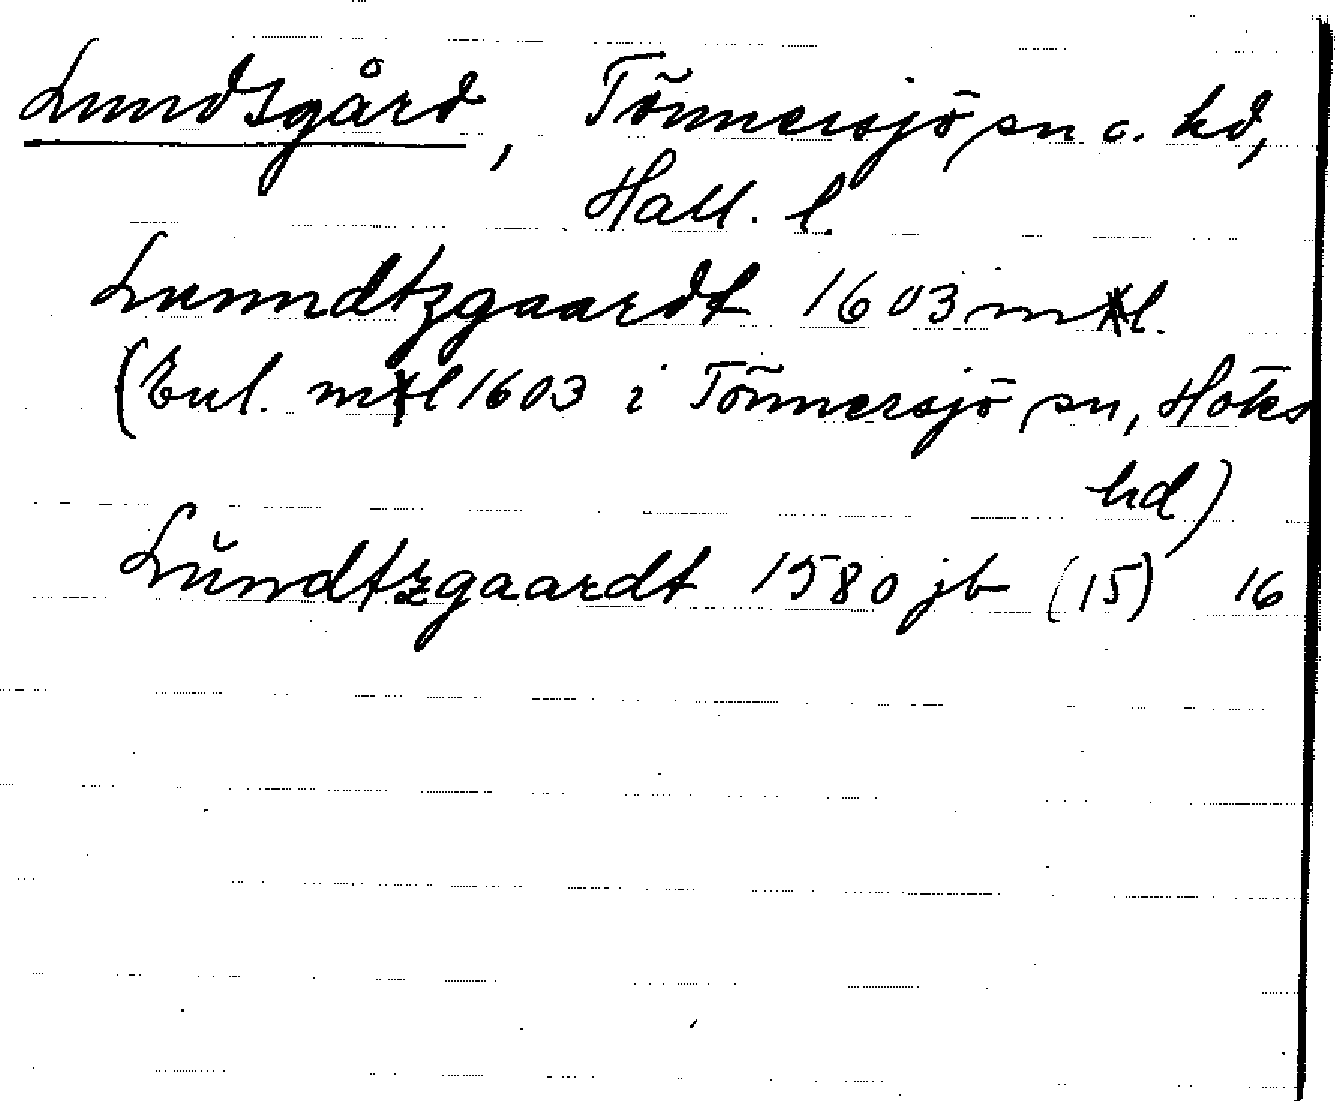 Lundsgård, Tönnersjö sn o. hd,
Hall. l.
Lunndtzgaardt 1603 mtl.
(Enl. mtl 1603 i Tönnersjö sn, Höks
hd)
Lŭndtzgaardt 1580 jb (15) 16